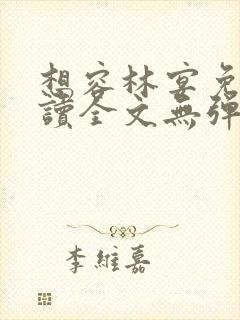 想容林宴免
讀全文無彈
李維嘉